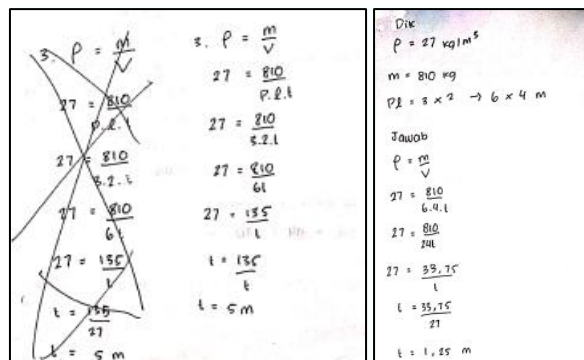 3. ρ = m/V
27 = 810/p.l.t
27 = 810/3.2.t
27 = 810/6t
27 = 135/t
t = 135/27
t = 5 m
3. ρ = m/V
27 = 810/p.l.t
27 = 810/3.2.t
27 = 810/6t
27 = 135/t
t = 135/t
t = 5 m
Dik
ρ = 27 kg/m³
m = 810 kg
Pl = 3 × 2 → 6 × 4 m
Jawab
ρ = m/V
27 = 810/6.4.t
27 = 810/24t
27 = 33,75/t
t = 33,75/27
t = 1,25 m